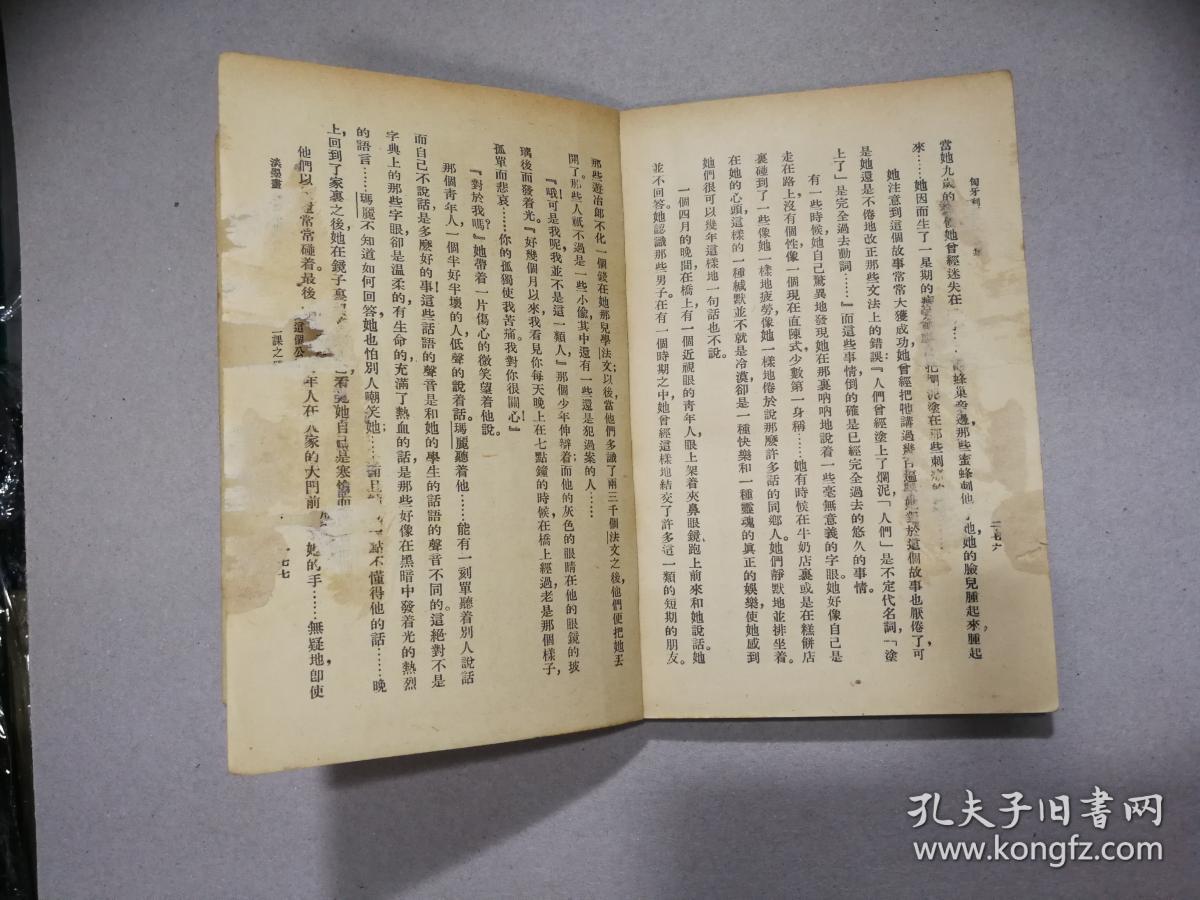 匈牙利
二七六
當她九歲的 她曾經迷失在 蜂巢旁邊那些蜜蜂刺他 她她的臉兒腫起來腫起
來……她因而生了一星期的 泥塗在那些刺
她注意到這個故事常常大獲成功她曾經把牠講過 於這個故事也厭倦了，可
是她還是不倦地改正那些文法上的錯誤：『人們曾經塗上了爛泥「人們」是不定代名詞，「塗
上了」是完全過去動詞……』而這些事情倒的確是已經完全過去的悠久的事情。
有一些時候她自己驚異地發現她在那裏吶吶地說着一些毫無意義的字眼她好像自己是
走在路上沒有個性像一個現在直陳式少數第一身稱……她有時候在牛奶店裏或是在糕餅店
裏碰到了一些像她一樣地疲勞像她一樣地倦於說那麼許多話的同鄉人。她們靜默地並排坐着。
在她的心頭這樣的一種緘默並不就是冷漠却是一種快樂和一種靈魂的眞正的娛樂，使她感到
她們很可以幾年這樣地一句話也不說。
一個四月的晚間在橋上有一個近視眼的青年人眼上架着夾鼻眼鏡跑上前來和她說話。她
並不回答她認識那些男子在有一個時期之中她曾經這樣地結交了許多這一類的短期的朋友。
那些遊冶郎不化一個錢在她那兒學法文；以後當他們多識了兩三千個法文之後他們便把她丟
開了。那些人祇不過是一些小偸其中還有一些還是犯過案的人……
『哦可是我呢我並不是這一類人』那個少年伸辯着而他的灰色的眼睛在他的眼鏡的玻
璃後而發着光。『好幾個月以來我看見你每天晚上在七點鐘的時候在橋上經過老是那個樣子，
孤單而悲哀……你的孤獨使我苦痛我對你很關心』
『對於我嗎？』她帶着一片傷心的微笑望着他說。
那個青年人一個半好半壞的人，低聲的說着話。瑪麗聽着他……能有一刻單聽着別人說話
而自己不說話是多麽好的事！這些話語的聲音是和她的學生的話語的聲音不同的這絕對不是
字典上的那些字眼却是溫柔的，有生命的，充滿了熱血的話，是那些好像在黑暗中發着光的熱烈
的語言……瑪麗不知道如何回答她也怕別人嘲笑她…… 一點不懂得他的話……晚
上，回到了家裏之後她在鏡子裏 看見她自己是寒愴而
他們以 常常碰着。最後 這個公 年人在 家的大門前 她的手……無疑地卽使
淡墨畫 一課之
七七
孔夫子旧书网
www.kongfz.com